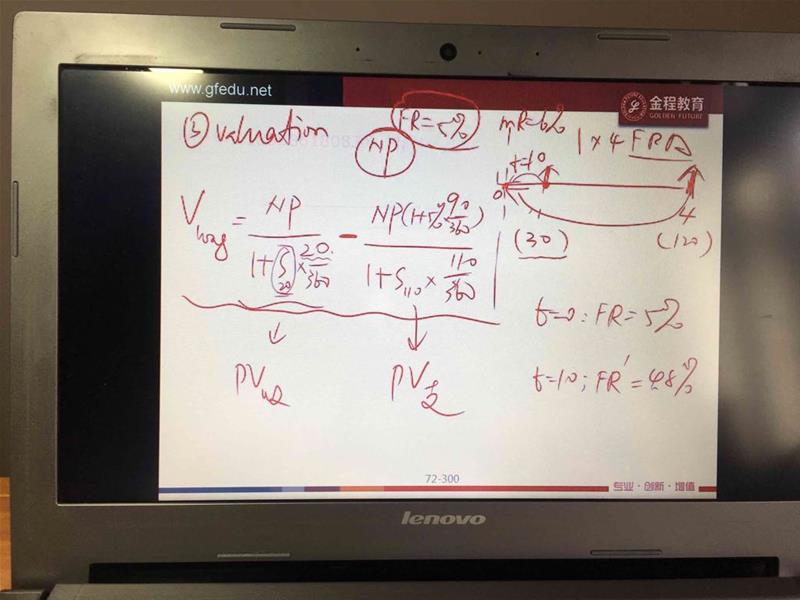 www.gfedu.net
金程教育
GOLDEN FUTURE
③ Valuation
FR=5%
MR=6%
NP
1×4 FRA
t=10
0
1
4
(30)
(120)
V long = NP / (1+S₂₀×20/360) - NP(1+5%90/360) / (1+S₁₁₀×110/360)
t=0: FR=5%
PV收
PV支
t=10; FR'=4.8%
72-300
专业·创新·增值
lenovo